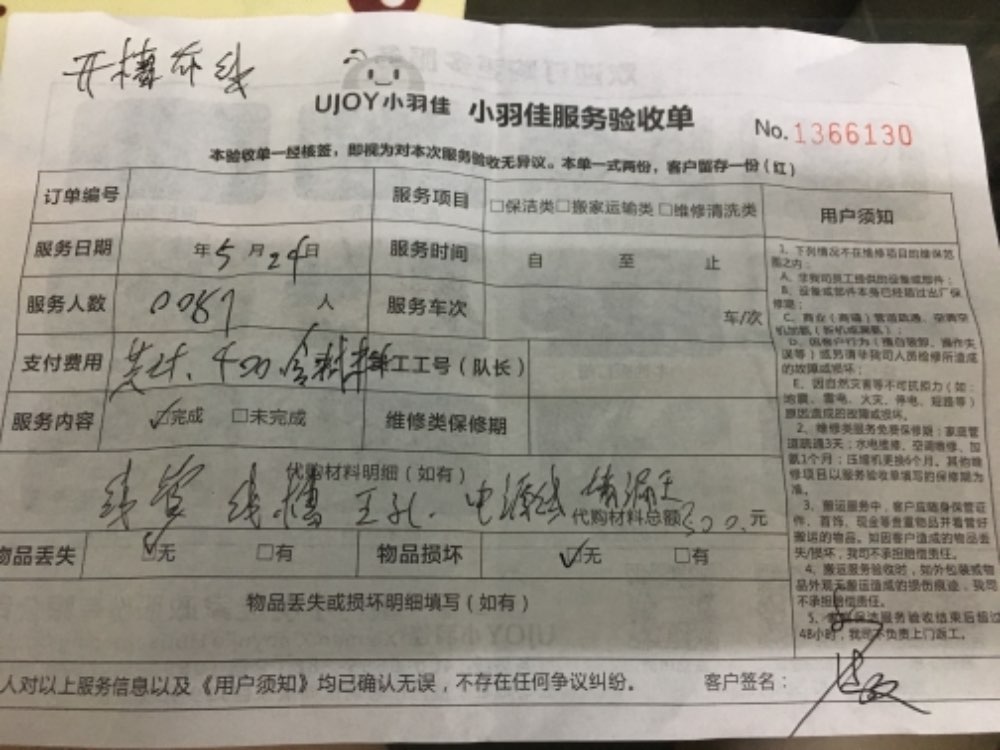 开槽布线
UJOY小羽佳 小羽佳服务验收单
No.1366130
本验收单一经核签，即视为对本次服务验收无异议。本单一式两份，客户留存一份（红）
订单编号 服务项目 □保洁类□搬家运输类 □维修清洗类
服务日期 年5月29日 服务时间 自 至 止
服务人数 0087 人 服务车次 车/次
支付费用 共计、400.含料 工工号（队长）
服务内容 ☑完成 □未完成 维修类保修期
代购材料明细（如有）
线管 线槽 电源线
代购材料总额300.元
物品丢失 ☑无 □有 物品损坏 ☑无 □有
物品丢失或损坏明细填写（如有）
人对以上服务信息以及《用户须知》均已确认无误，不存在任何争议纠纷。 客户签名：
用户须知
1、下列情况不在维修项目的维保范
围之内：
A、非我司员工提供的设备或部件；
B、设备或部件本身已经超过出厂保
修期；
C、商业（商铺）管道疏通、空调空
机加氨（拆机或漏氨）；
D、因客户行为（擅自装卸、操作失
误等）或另请非我司人员检修所造成
的故障或损坏；
E、因自然灾害等不可抗拒力（如：
地震、雷电、火灾、停电、短路等）
原因造成的故障或损坏。
2、维修类服务免费保修期：家庭管
道疏通3天；水电维修、空调维修、加
氨1个月；压缩机更换6个月。其他维
修项目以服务验收单填写的保修期为
准。
3、搬运服务中，客户应随身保管证
件、首饰、现金等贵重物品并看管好
搬运的物品。如因客户造成的物品丢
失/损坏，我司不承担赔偿责任。
4、搬运服务验收时，如外包装或物
品外观无搬运造成的损伤痕迹，我司
不承担赔偿责任。
5、保洁服务验收结束后超过
48小时，我司不负责上门返工。